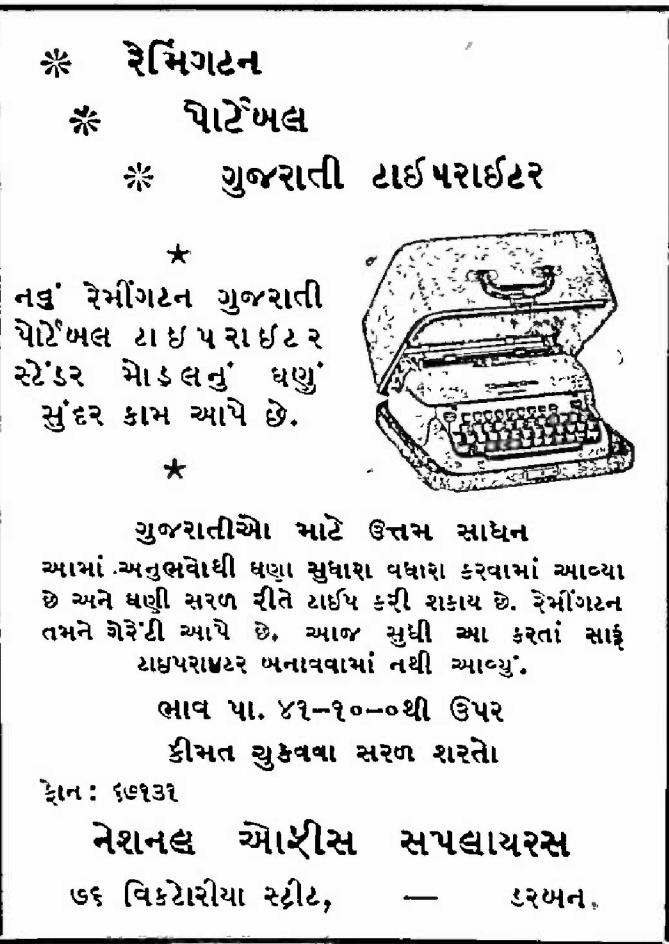 રેમિંગટન
પોર્ટેબલ
ગુજરાતી ટાઈપરાઈટર
નવું રેમીંગટન ગુજરાતી
પોર્ટેબલ ટાઇપરાઇટર
સ્ટેંડર મોડલનું ઘણું
સુંદર કામ આપે છે.
ગુજરાતીઓ માટે ઉત્તમ સાધન
આમાં અનુભવોથી ઘણા સુધારા વધારા કરવામાં આવ્યા
છે અને ઘણી સરળ રીતે ટાઈપ કરી શકાય છે. રેમીંગટન
તમને ગેરેંટી આપે છે. આજ સુધી આ કરતાં સારૂં
ટાઇપરાઇટર બનાવવામાં નથી આવ્યું.
ભાવ પા. ૪૧–૧૦–૦થી ઉપર
કીમત ચુકવવા સરળ શરતો
ફોન: ૬૭૧૩૧
નેશનલ ઓફીસ સપલાયરસ
૭૬ વિકટોરીયા સ્ટ્રીટ, — ડરબન.